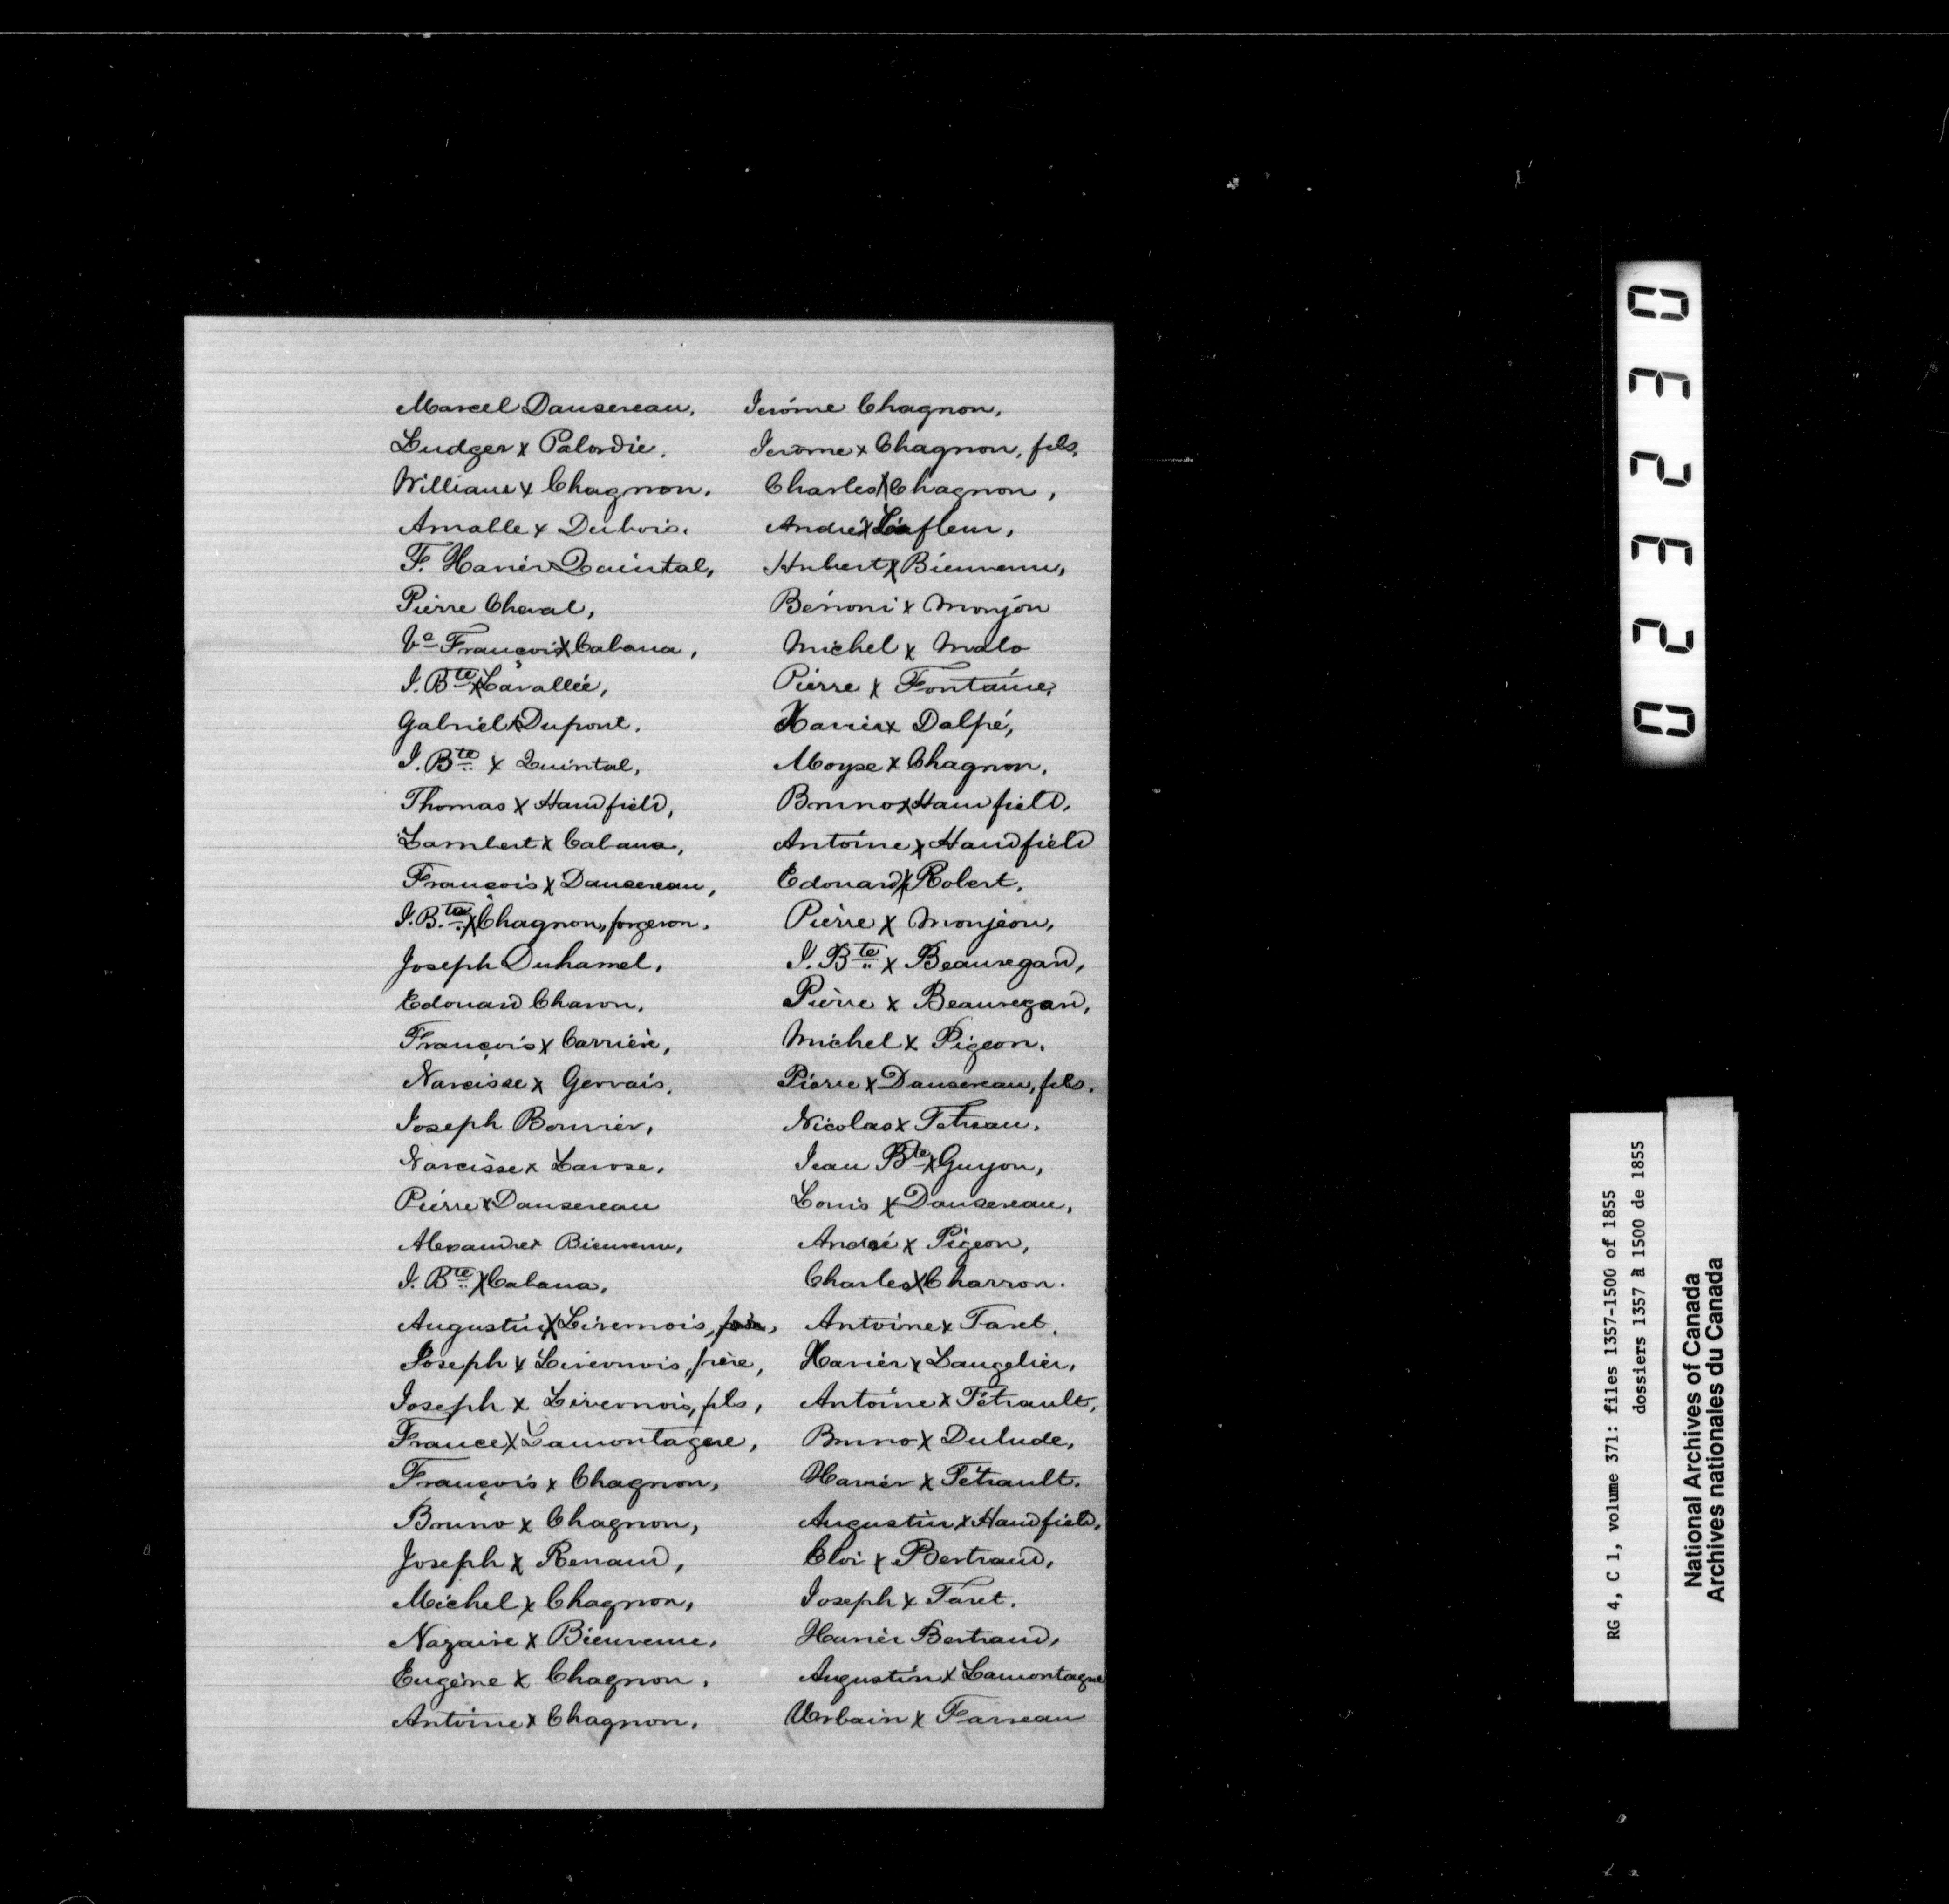 Marcel Dansereau, Jerôme Chagnon,
Ludger x Palardie, Jerome x Chagnon, fils,
William x Chagnon, Charles x Chagnon,
Amable x Dubois, André x Lafleur,
F. Xavier Quintal, Hubert x Bienvenu,
Pierre Cheval, Bénoni x Monjon
Ve François x Cabana, Michel x Malo
J. Bte x Lavallée, Pierre x Fontaine,
Gabriel x Dupont, Xavier x Dalpé,
J. Bte x Quintal, Moyse x Chagnon,
Thomas x Handfield, Bruno x Handfield,
Lambert x Cabana, Antoine x Handfield
François x Dansereau, Edouard x Robert,
J. Bte x Chagnon, forgeron, Pierre x Monjeon,
Joseph Duhamel, J. Bte x Beauregard,
Edouard Charon, Pierre x Beauregard,
François x Carrière, Michel x Pigeon,
Narcisse x Gervais, Pierre x Dansereau, fils.
Joseph Bouvier, Nicolas x Tetreau,
Narcisse x Larose, Jean Bte x Guyon,
Pierre x Dansereau Louis x Dansereau,
Alexandre x Bienvenu, André x Pigeon,
J. Bte x Cabana, Charles x Charron.
Augustin x Livernois, Antoine x Taret,
Joseph x Livernois, père, Xavier x Langelier,
Joseph x Livernois, fils, Antoine x Tétrault,
France x Lamontagne, Bruno x Dulude,
François x Chagnon, Xavier x Tétrault.
Bruno x Chagnon, Augustin x Handfield,
Joseph x Renaud, Eloi x Bertrand,
Michel x Chagnon, Joseph x Taret.
Nazaire x Bienvenue, Xavier Bertrand,
Eugène x Chagnon, Augustin x Lamontagne
Antoine x Chagnon, Urbain x Farreau
023230
RG 4, C 1, volume 371: files 1357-1500 of 1855
dossiers 1357 à 1500 de 1855
National Archives of Canada
Archives nationales du Canada